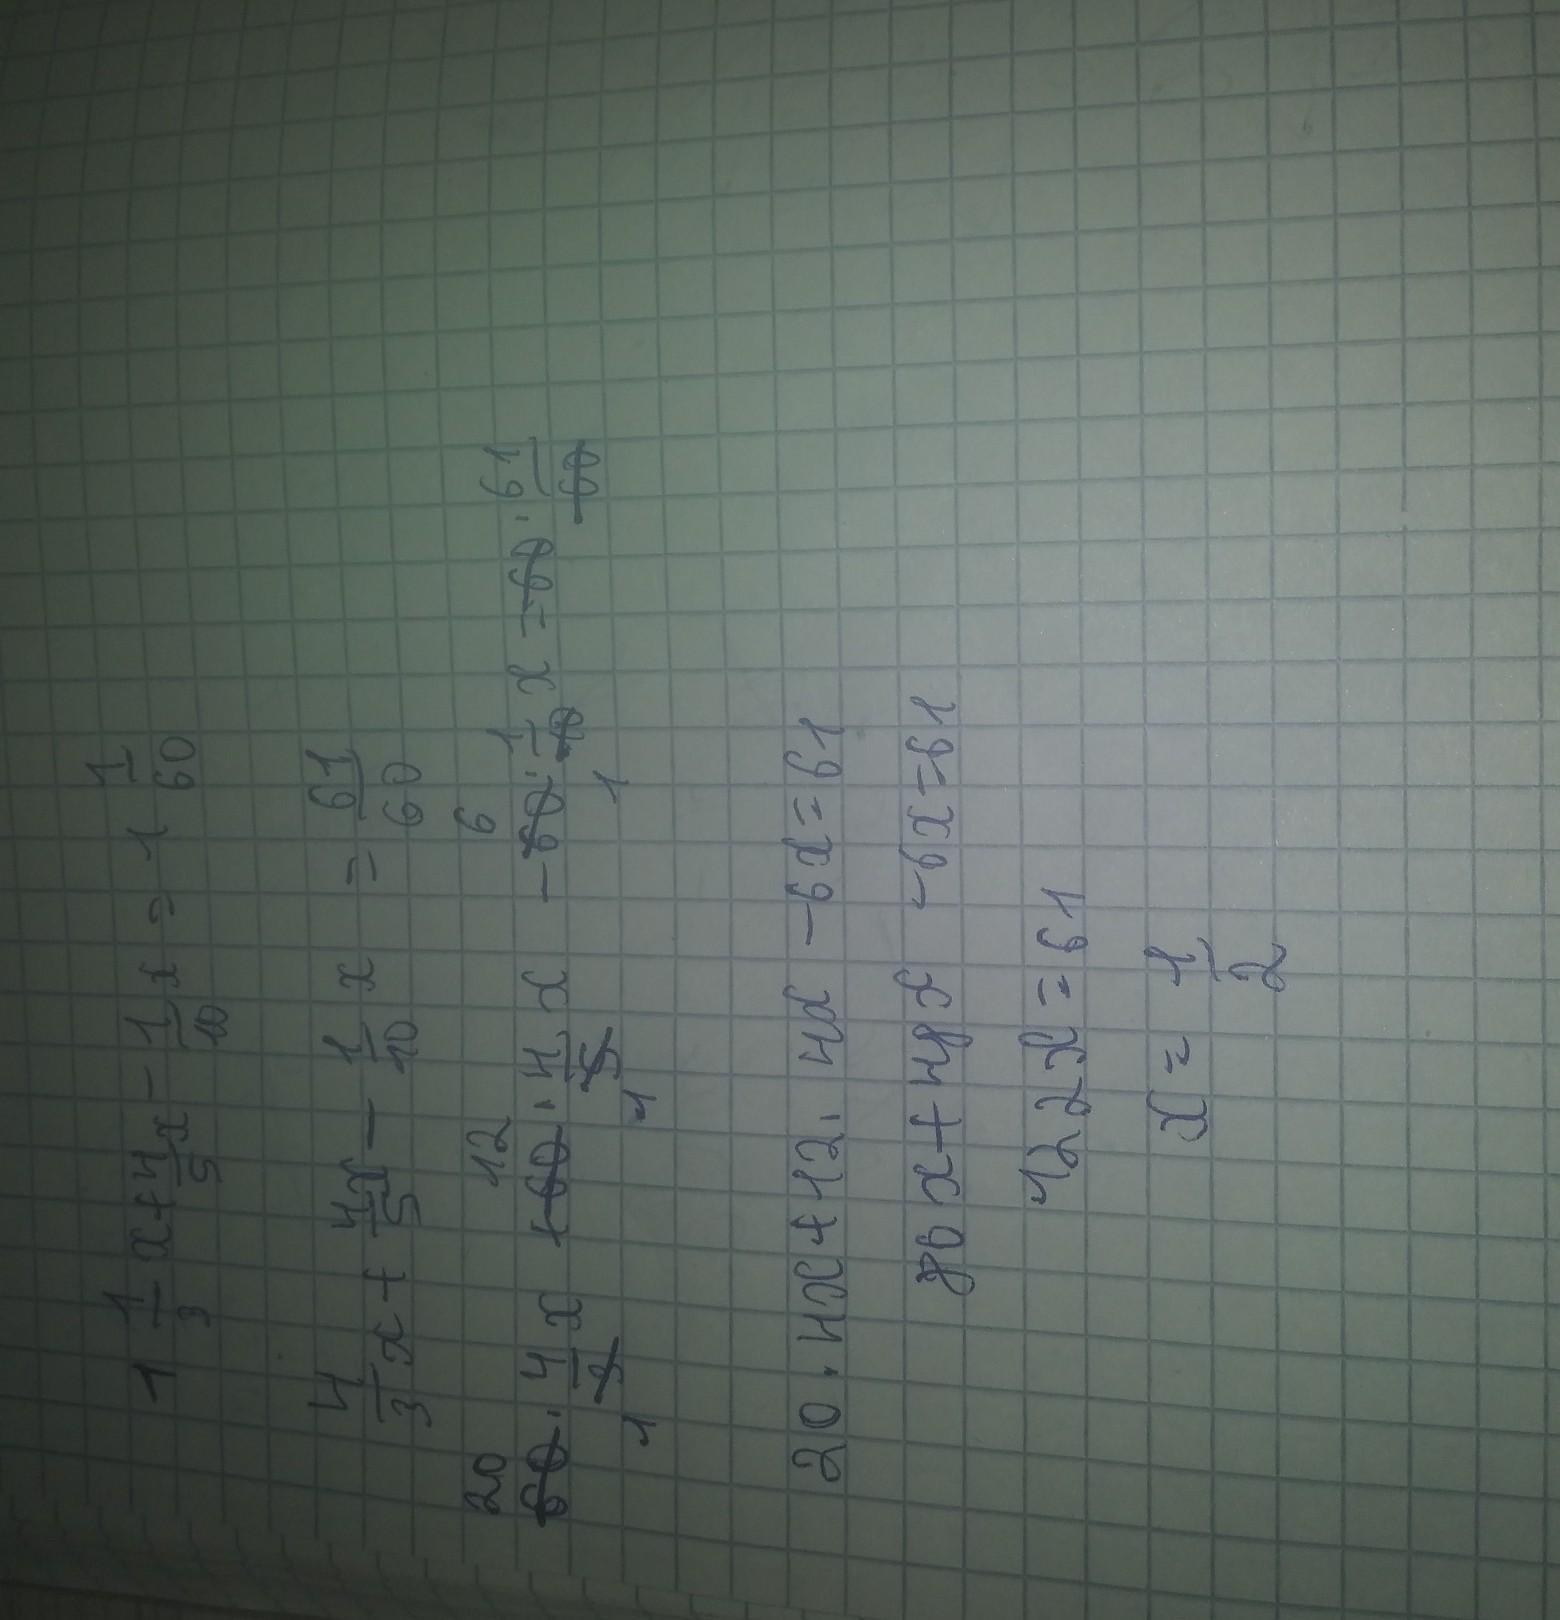 1 1/3 x + 4/5 x - 1/10 x = 1 1/60
4/3 x + 4/5 x - 1/10 x = 61/60
20 12 6
60 · 4/3 x + 60 · 4/5 x - 60 · 1/10 x = 60 · 61/60
1 1 1
20 · 4x + 12 · 4x - 6x = 61
80x + 48x - 6x = 61
122x = 61
x = 1/2